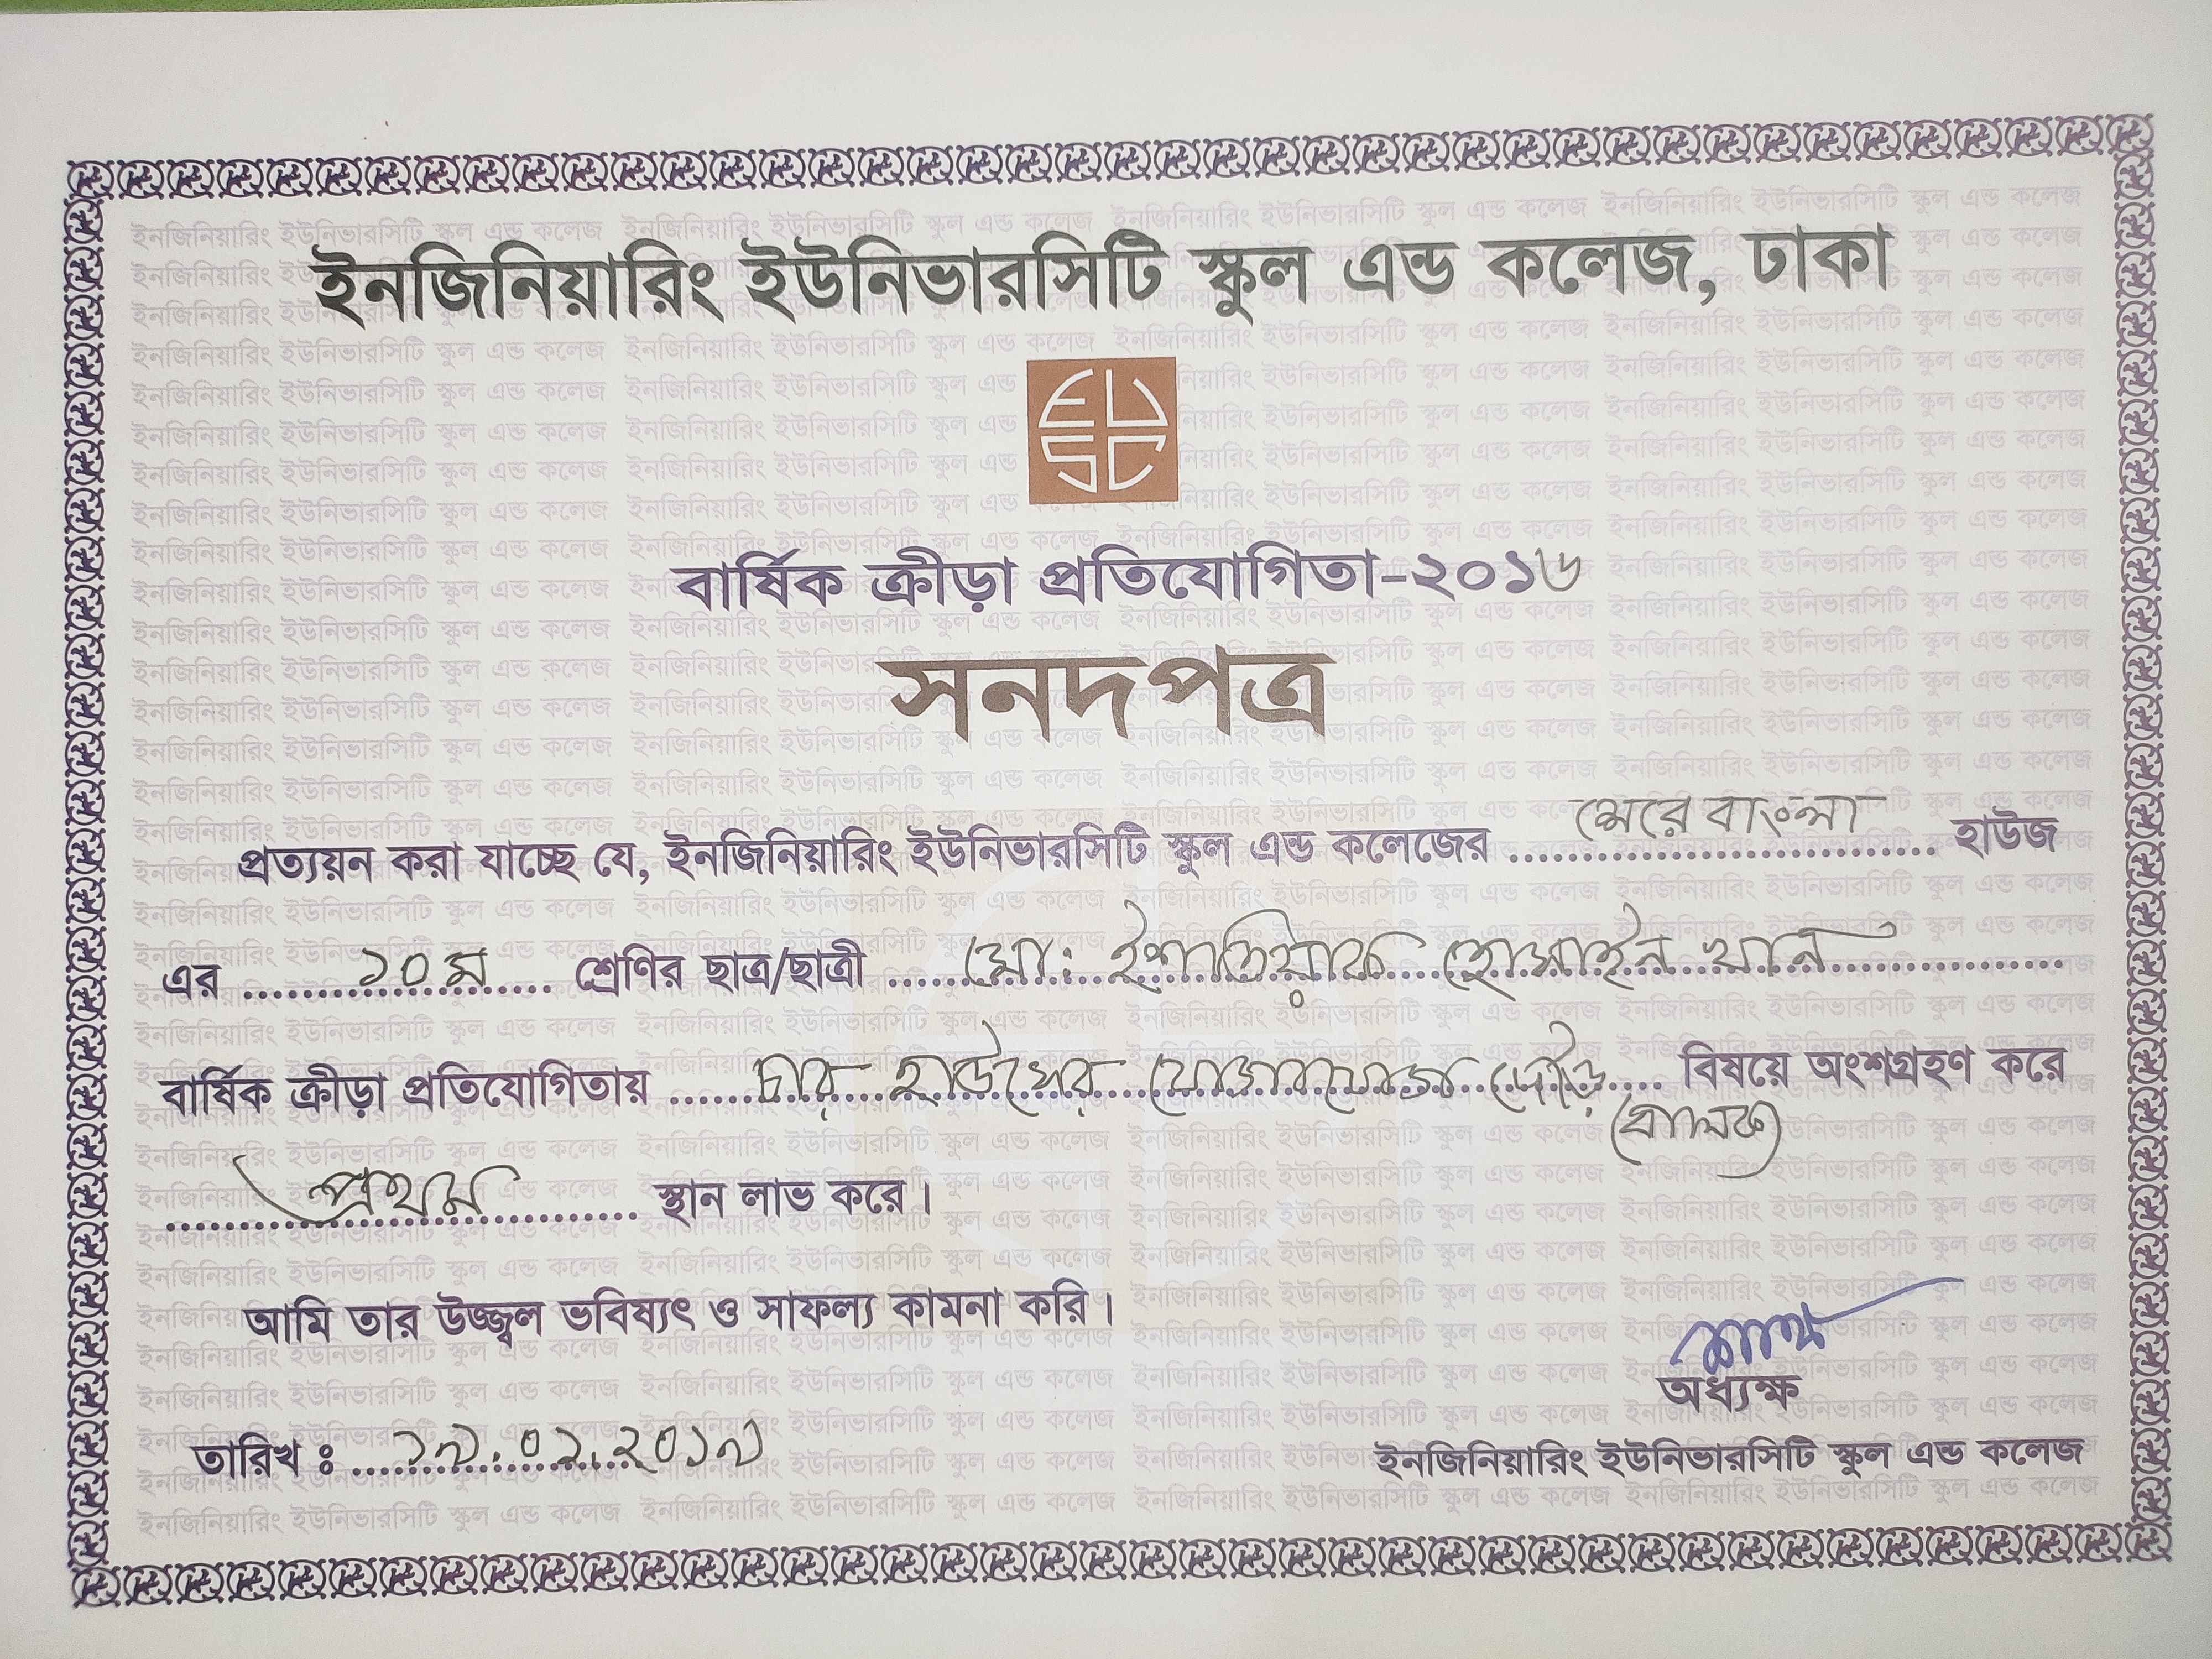 ইনজিনিয়ারিং ইউনিভারসিটি স্কুল এন্ড কলেজ, ঢাকা
EUSC
বার্ষিক ক্রীড়া প্রতিযোগিতা-২০১৬
সনদপত্র
প্রত্যয়ন করা যাচ্ছে যে, ইনজিনিয়ারিং ইউনিভারসিটি স্কুল এন্ড কলেজের শেরে বাংলা হাউজ
এর ১০ম শ্রেণির ছাত্র/ছাত্রী মো: ইশতিয়াক হোসাইন খান
বার্ষিক ক্রীড়া প্রতিযোগিতায় চার হাউসের যোগাযোগ দৌড় বিষয়ে অংশগ্রহণ করে
(বালক)
প্রথম স্থান লাভ করে।
আমি তার উজ্জ্বল ভবিষ্যৎ ও সাফল্য কামনা করি।
অধ্যক্ষ
তারিখ ঃ ১৭.০২.২০১৭
ইনজিনিয়ারিং ইউনিভারসিটি স্কুল এন্ড কলেজ